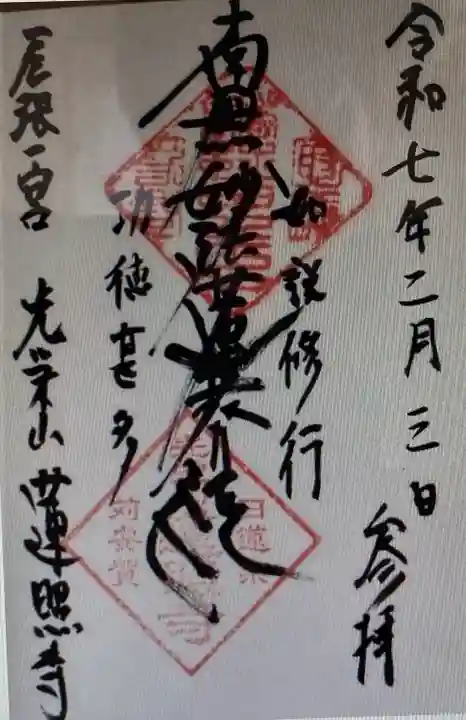 令和七年二月三日 参拝
如説修行
南無妙法蓮華経
功徳甚多
尾張一宮 光栄山 蓮照寺
日蓮宗
苅安賀